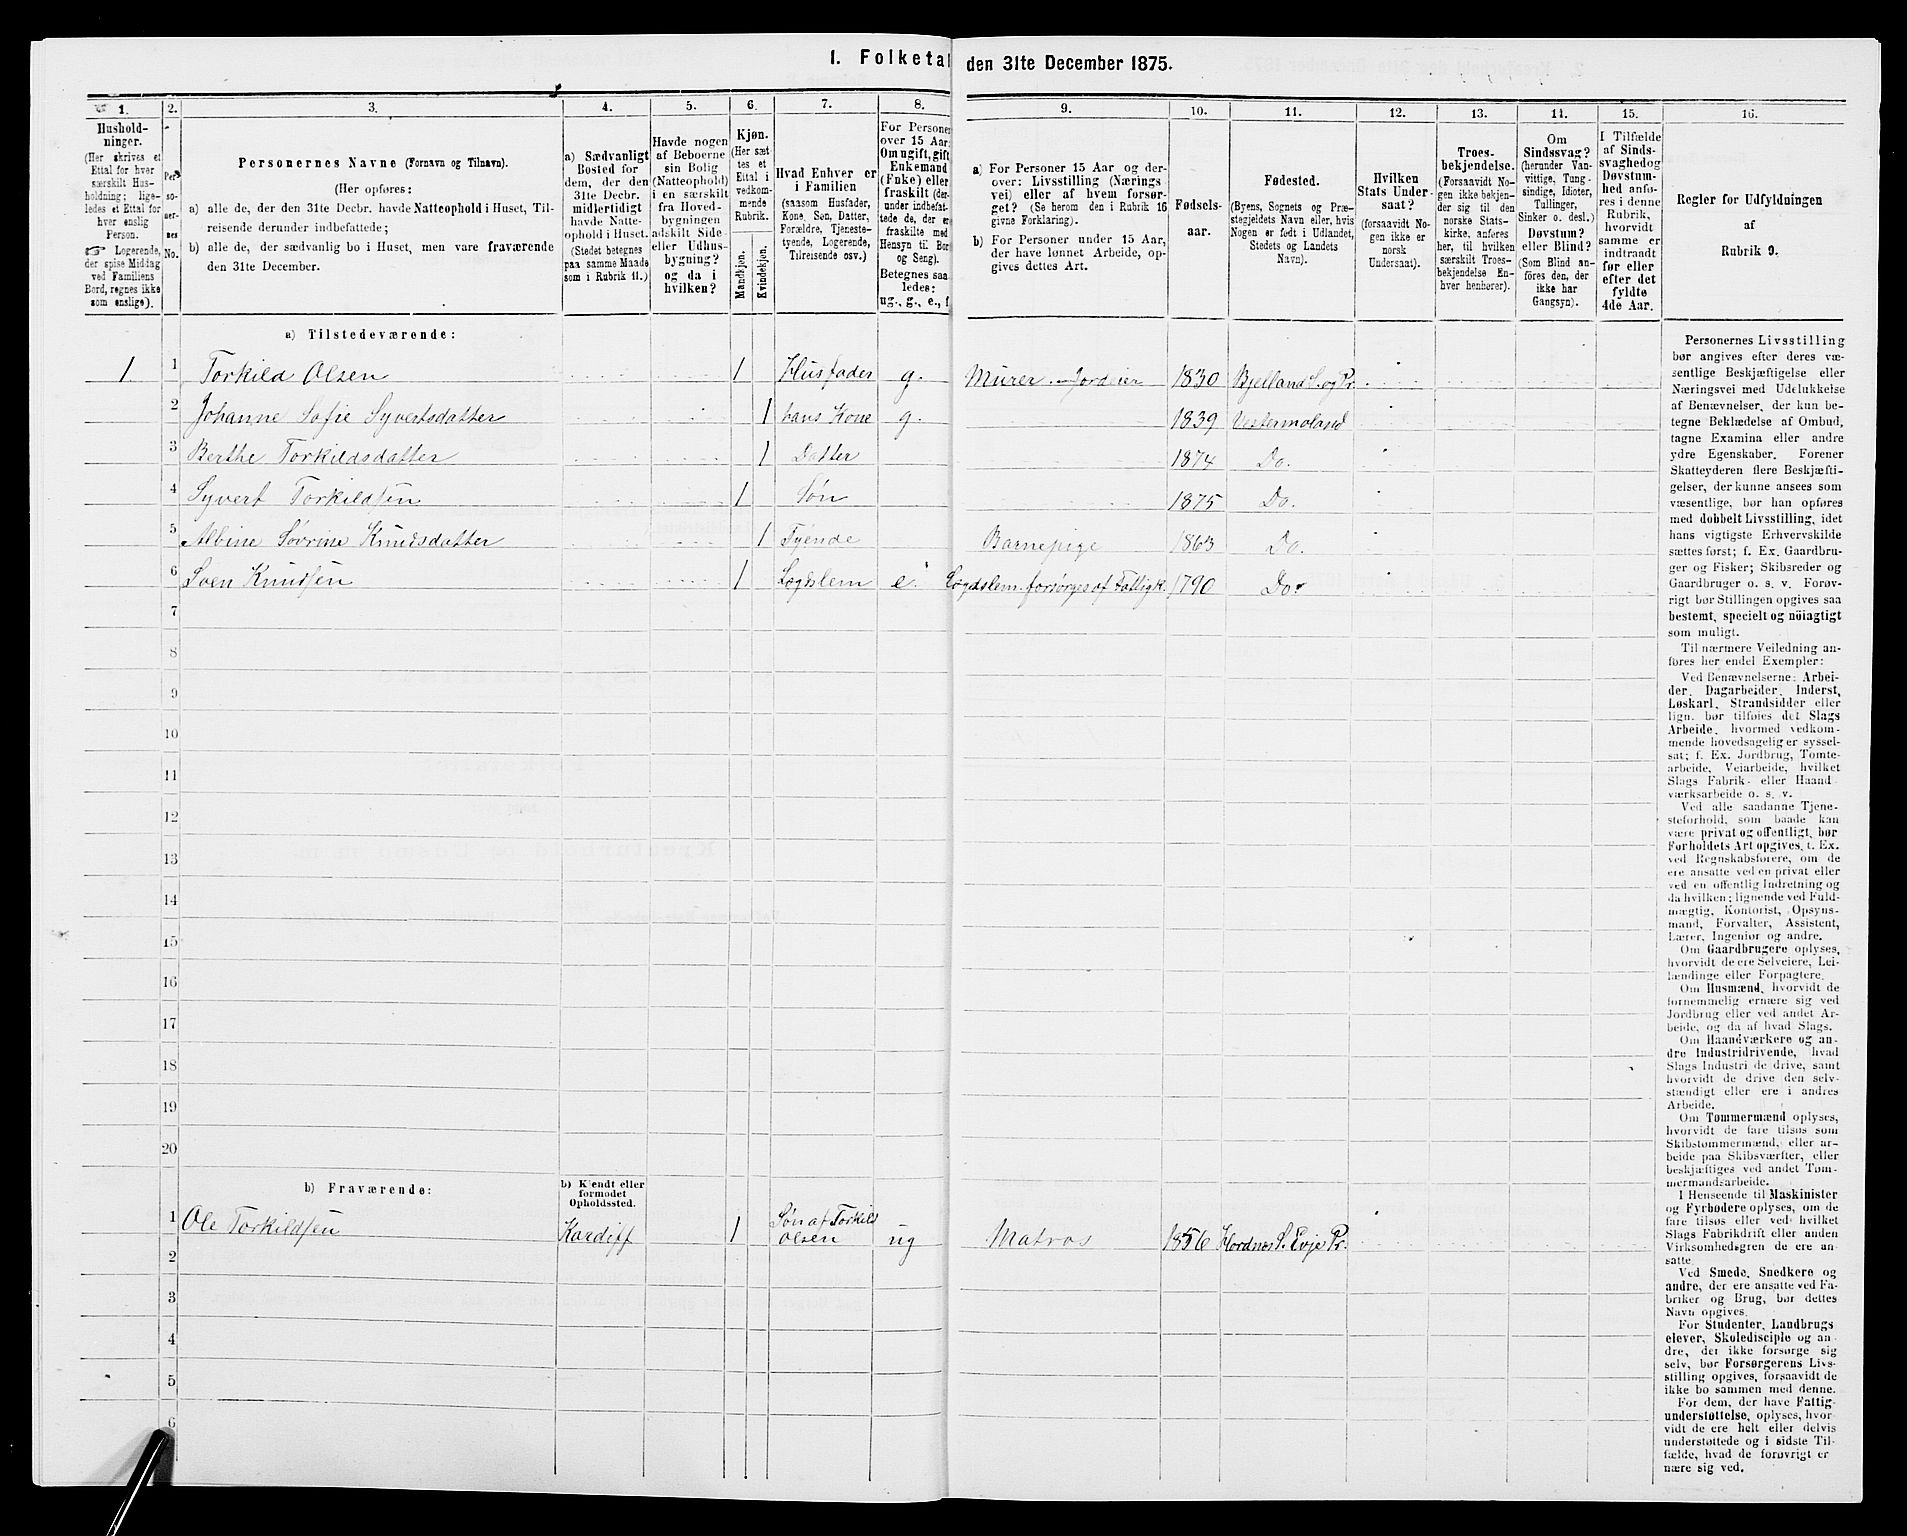 I. Folketal
den 31te December 1875.
1.
2.
3.
4.
5.
6.
7.
8.
9.
10.
11.
12.
13.
14.
15.
16.
Hushold-
ninger.
(Her skrives et
Ettal for hver
særskilt Hus-
holdning; lige-
ledes et Ettal for
hver enslig
Person.
☞ Logerende,
der spise Middag
ved Familiens
Bord, regnes ikke
som enslige).
Per-
so-
ner-
nes
No.
Personernes Navne (Fornavn og Tilnavn).
(Her opføres:
a) alle de, der den 31te Decbr. havde Natteophold i Huset, Til-
reisende derunder indbefattede;
b) alle de, der sædvanlig bo i Huset, men vare fraværende
den 31te December.
a) Sædvanligt
Bosted for
dem, der den
31te Decbr.
midlertidigt
havde Natte-
ophold i Huset.
(Stedet betegnes
paa samme Maade
som i Rubrik 11.)
Havde nogen
af Beboerne
sin Bolig
(Natteophold)
i en særskilt
fra Hoved-
bygningen
adskilt Side-
eller Udhus-
bygning?
og da i
hvilken?
Kjøn.
(Her sæt-
tes et
Ettal i
vedkom-
mende
Rubrik.
Mandkjøn.
Kvindekjøn.
Hvad Enhver er
i Familien
(saasom Husfader,
Kone, Søn, Datter,
Forældre, Tjeneste-
tyende, Logerende,
Tilreisende osv.)
For Persone
over 15 Aar:
Om ugift, gift
Enkemand
(Enke) eller
fraskilt (der-
under indbefat-
tede de, der er
fraskilte med
Hensyn til Bor
og Seng).
Betegnes saa
ledes:
ug., g., e., f
a) For Personer 15 Aar og der-
over: Livsstilling (Nærings
vei) eller af hvem forsør-
get? (Se herom den i Rubrik 16
givne Forklaring).
b) For Personer under 15 Aar,
der have lønnet Arbeide, op-
gives dettes Art.
Fødsels-
aar.
Fødested.
(Byens, Sognets og Præ-
stegjeldets Navn eller, hvis
Nogen er født i Udlandet,
Stedets og Landets
Navn).
Hvilken
Stats Under-
saat?
(forsaavidt No-
gen ikke er
norsk
Undersaat).
Troes-
bekjendelse.
(Forsaavidt No-
gen ikke bekjen-
der sig til den
norske Stats-
kirke, anføres
her, til hvilken
særskilt Troes-
bekjendelse En-
hver henhører).
Om
Sindssvag?
(herunder Van-
vittige, Tung-
sindige, Idioter,
Tullinger,
Sinker o. desl.)
Døvstum?
eller Blind?
(Som Blind an-
føres den, der
ikke har
Gangsyn).
I Tilfælde
af Sinds-
svaghed og
Døvstum-
hed anfø-
res i denne
Rubrik,
hvorvidt
samme er
indtraadt
før eller
efter det
fyldte
4de Aar.
Regler for Udfyldningen
af
Rubrik 9.
a) Tilstedeværende:
1 1 Torkild Olsen 1 Husfader g. Murer Jordeier 1830 Bjelland S. og Pr.
2 Johanne Sofie Syvertsdatter 1 hans Kone g. 1839 Vestermoland
3 Berthe Torkildsdatter 1 Datter 1874 Do.
4 Syvert Torkildsen 1 Søn 1875 Do.
5 Albine Sovrine Knudsdatter 1 Tyende Barnepige 1863 Do.
6 Soen Knudsen 1 Lægdslem e. Lægdslem forsørges af Fattigk. 1790 Do.
7
8
9
10
11
12
13
14
15
16
17
18
19
20
b) Fraværende:
b) Kjendt eller
formodet
Opholdssted.
1 Ole Torkildsen Kardiff 1 Søn af Torkild
Olsen ug Matros 1856 Hordnes S. Evje Pr.
2
3
4
5
6
Personernes Livsstilling
bør angives efter deres væ-
sentlige Beskjæftigelse eller
Næringsvei med Udelukkelse
af Benævnelser, der kun be-
tegne Beklædelse af Ombud,
tagne Examina eller andre
ydre Egenskaber. Forener
Skatteyderen flere Beskjæfti-
gelser, der kunne ansees som
væsentlige, bør han opføres
med dobbelt Livsstilling, idet
hans vigtigste Erhvervskilde
sættes først; f. Ex. Gaardbru-
ger og Fisker; Skibsreder og
Gaardbruger o. s. v. Forøv-
rigt bør Stillingen opgives saa
bestemt, specielt og nöiagtigt
som muligt.
Til nærmere Veiledning an-
føres her endel Exempler:
Ved Benævnelserne: Arbei-
der, Dagarbeider, Inderst,
Løskarl, Strandsidder eller
lign. bør tilføies det Slags
Arbeide, hvormed vedkom-
mende hovedsagelig er syssel-
sat; f. Ex. Jordbrug, Tomte-
arbeide, Veiarbeide, hvilket
Slags Fabrik- eller Haand-
værksarbeide o. s. v.
Ved alle saadanne Tjene-
steforhold, som baade kan
være privat og offentligt, bør
Forholdets Art opgives, f. Ex.
ved Regnskabsførere, om de
ere ansatte ved en privat eller
ved en offentlig Indretning og
da hvilken; lignende ved Fuld-
mægtig, Kontorist, Opsyns-
mand, Forvalter, Assistent,
Lærer, Ingeniør og andre.
Om Gaardbrugere oplyses,
hvorvidt de ere Selveiere, Lei-
lændinge eller Forpagtere.
Om Husmænd, hvorvidt de
fornemmelig ernære sig ved
Jordbrug eller ved andet Ar-
beide, og da af hvad Slags.
Om Haandværkere og an-
dre Industridrivende, hvad
Slags Industri de drive, samt
hvorvidt de drive den selv-
stændigt eller ere i andres
Arbeide.
Om Tømmermænd oplyses,
hvorvidt de fare tilsøs som
Skibstømmermænd, eller ar-
beide paa Skibsværfter, eller
beskjæftiges ved andet Tøm-
mermandsarbeide.
I Henseende til Maskinister
og Fyrbødere oplyses, om de
fare tilsøs eller ved hvilket
Slags Fabrikdrift eller anden
Virksomhedsgren de ere an-
satte.
Ved Smede, Snedkere og
andre, der ere ansatte ved Fa-
briker og Brug, bør dettes
Navn opgives.
For Studenter, Landbrugs
elever, Skoledisciple og an-
dre, der ikke forsørge sig
selv, bør Forsørgerens Livs-
stilling opgives, forsaavidt de
ikke bo sammen med denne.
For dem, der have Fattig-
understøttelse, oplyses, hvor-
vidt de ere helt eller delvis
understøttede og i sidste Til-
fælde, hvad de forøvrigt er
nære sig ved.